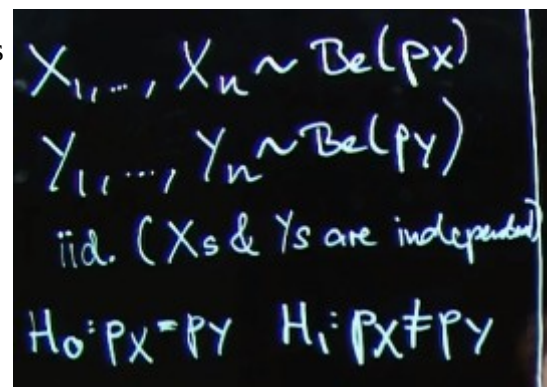 s
X₁, ..., Xₙ ~ Be(pX)
Y₁, ..., Yₙ ~ Be(pY)
iid. (Xs & Ys are independent)
H₀: pX = pY H₁: pX ≠ pY